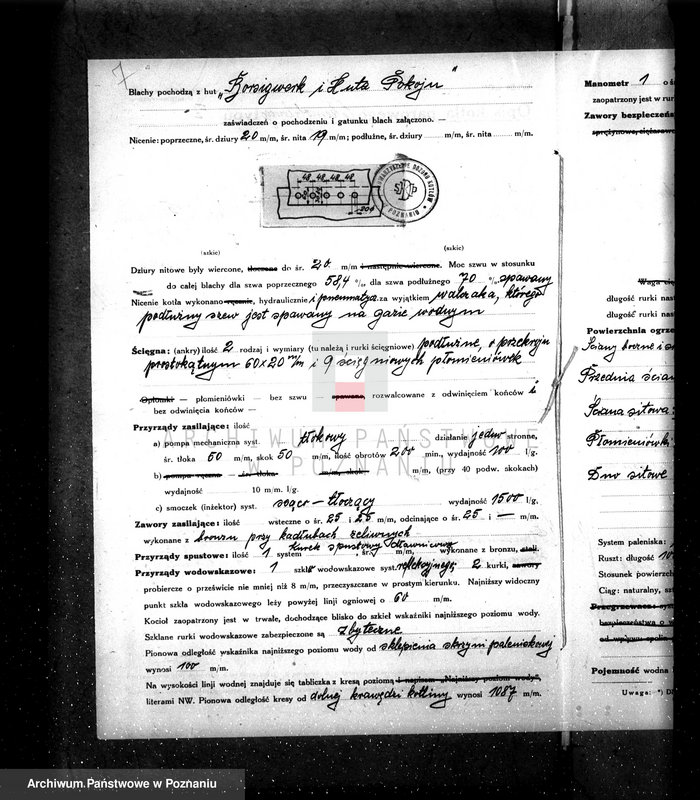 7
Blachy pochodzą z hut „Borsigwerk i Huta Pokoju"
zaświadczeń o pochodzeniu i gatunku blach załączono. —
Nicenie: poprzeczne, śr. dziury 20 m/m, śr. nita 19 m/m; podłużne, śr. dziury m/m, śr. nita m/m.
48 48 48 48
STOWARZYSZENIE DOZORU KOTŁÓW
POZNANIU
(szkic) (szkic)
Dziury nitowe były wiercone, tłoczone do śr. 20 m/m i następnie wiercone. Moc szwu w stosunku
do całej blachy dla szwu poprzecznego 58,4 %, dla szwu podłużnego 70 %, spawany
Nicenie kotła wykonano ręcznie, hydraulicznie i pneumatycz. za wyjątkiem walczaka, którego
podłużny szew jest spawany na gazie wodnym
Ścięgna: (ankry) ilość 2 rodzaj i wymiary (tu należą i rurki ścięgniowe) podłużne, o przekroju
prostokątnym 60x20 m/m i 9 ścięgniowych płomieniówek
Opłomki — płomieniówki — bez szwu — spawane, rozwalcowane z odwinięciem końców i
bez odwinięcia końców —
Przyrządy zasilające: ilość
a) pompa mechaniczna syst. tłokowy działanie jedno stronne,
śr. tłoka 60 m/m, skok 50 m/m, ilość obrotów 200 min., wydajność 100 l/g.
b) pompa ręczna śr. tłoka m/m, skok m/m, (przy 40 podw. skokach)
wydajność 10 m/m. l/g.
c) smoczek (inżektor) syst. ssąco-tłoczący wydajność 1500 l/g.
Zawory zasilające: ilość wsteczne o śr. 25 i 25 m/m, odcinające o śr. 25 i — m/m.
wykonane z bronzu przy kadłubach żeliwnych
Przyrządy spustowe: ilość 1 system kurek spustowy dławnicowy śr. m/m, wykonane z bronzu, stali.
Przyrządy wodowskazowe: 1 szkło wodowskazowe syst. refleksyjnego, 2 kurki, zawory
probiercze o prześwicie nie mniej niż 8 m/m, przeczyszczane w prostym kierunku. Najniższy widoczny
punkt szkła wodowskazowego leży powyżej linji ogniowej o 60 m/m.
Kocioł zaopatrzony jest w trwałe, dochodzące blisko do szkieł wskaźniki najniższego poziomu wody.
Szklane rurki wodowskazowe zabezpieczone są zbyteczne
Pionowa odległość wskaźnika najniższego poziomu wody od sklepienia skrzyni paleniskowej
wynosi 100 m/m.
Na wysokości linji wodnej znajduje się tabliczka z kresą poziomą i napisem „Najniższy poziom wody",
literami NW. Pionowa odległość kresy od dolnej krawędzi kotliny wynosi 1087 m/m.
Manometr 1 o
zaopatrzony jest w rur
Zawory bezpieczeńs
sprężynowe, ciężarowe
Waga cię
długość rurki nast
długość rurki nast
Powierzchnia ogrze
Ściany boczne i
Przednia ścian
Ściana sitowa
Płomieniówk
Dno sitowe
System paleniska:
Ruszt: długość 10
Stosunek powierzch
Ciąg: naturalny, szt
Przegrzewacz:
bezpieczeństwa o
od wpływu spalin
Pojemność wodna
Uwaga: *) D
ARCHIWUM PAŃSTWOWE
W POZNANIU
Archiwum Państwowe w Poznaniu